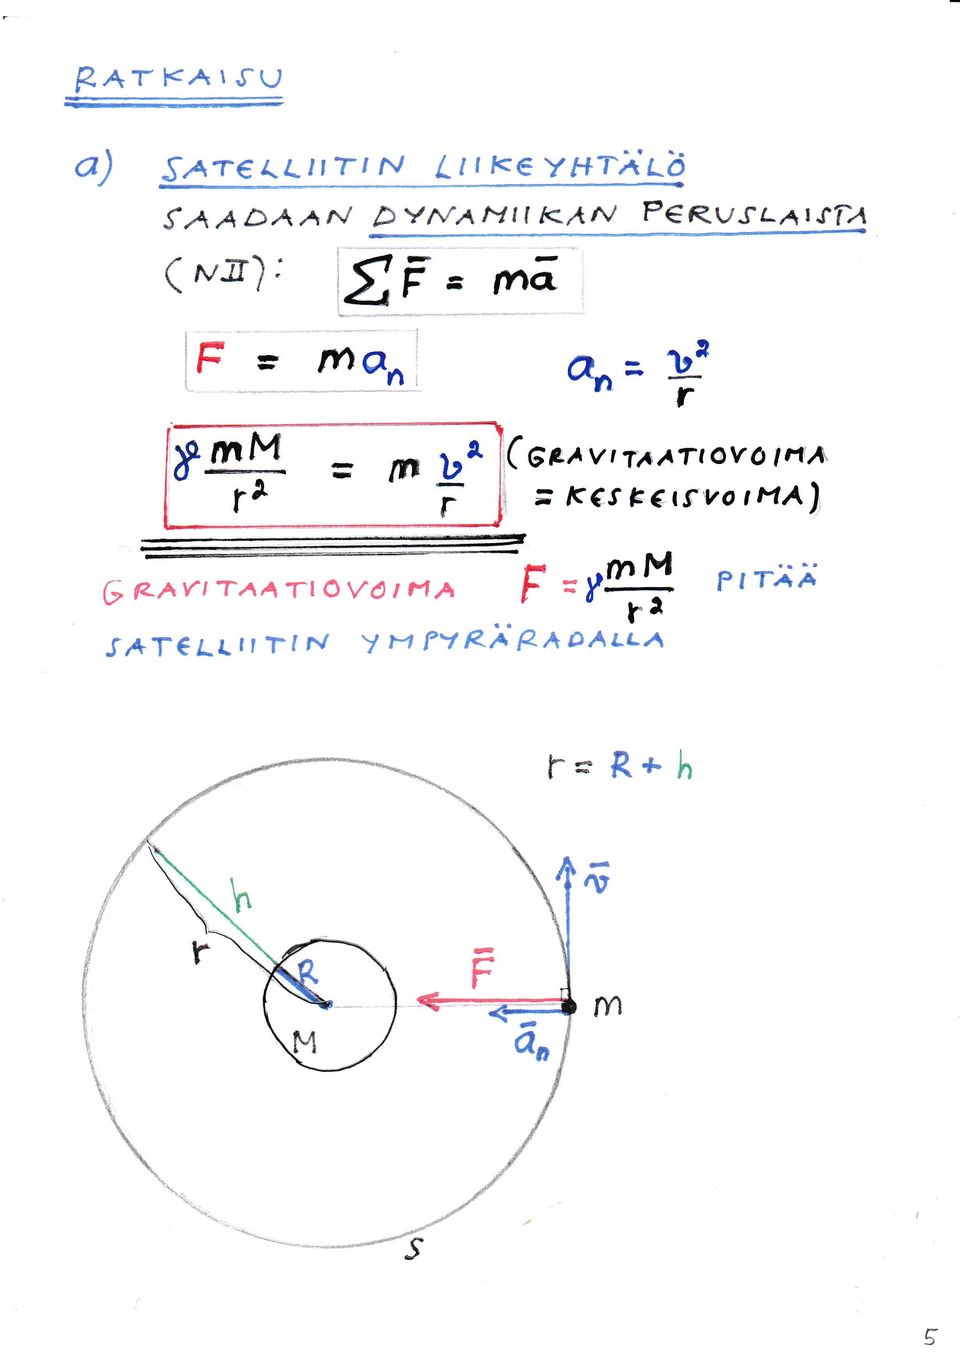 RATKAISU
a) SATELLIITIN LIIKEYHTÄLÖ
SAADAAN DYNAMIIKAN PERUSLAISTA
(NII): ∑F̄ = mā
F = maₙ aₙ = v²/r
γ mM/r² = m v²/r (GRAVITAATIOVOIMA
= KESKEISVOIMA)
GRAVITAATIOVOIMA F = γ mM/r² PITÄÄ
SATELLIITIN YMPYRÄRADALLA
r = R + h
v̄
h
r
R
F̄
m
M
āₙ
S
5